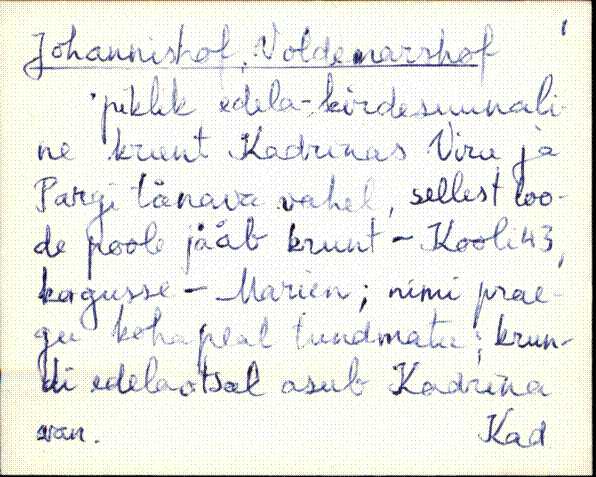 Johannishof, Voldemarshof
piklik edela-kirdesuunali-
ne krunt Kadrinas Viru ja
Pargi tänava vahel, sellest loo-
de poole jääb krunt - Kooli 43,
kagusse - Marien; nimi prae-
gu kohapeal tundmatu; krun-
di edelaotsal asub Kadrina
van. Kad